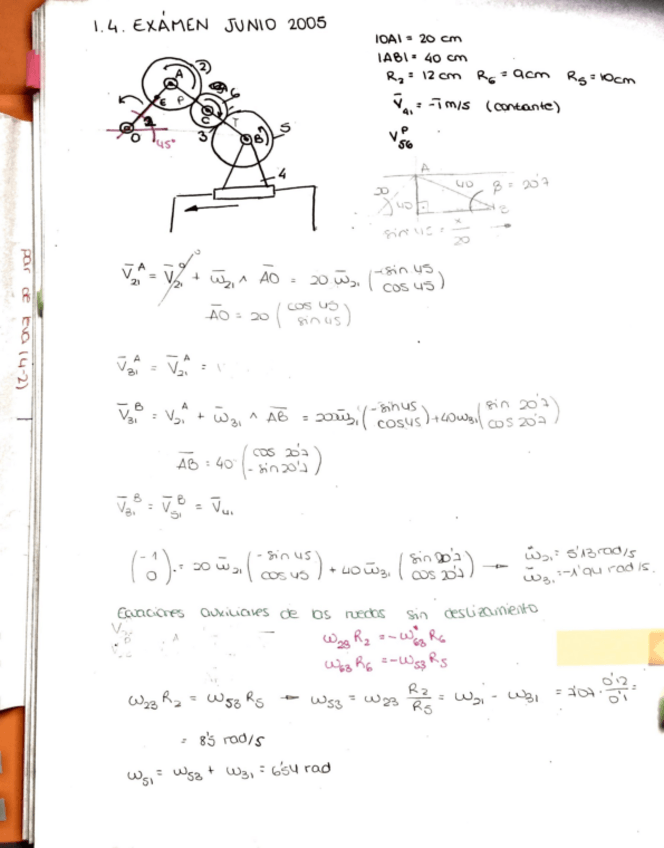 1.4. EXÁMEN JUNIO 2005
|OA| = 20 cm
|AB| = 40 cm
R₂ = 12 cm R₆ = 9cm R₅ = 10cm
V̄₄₁ = -1 m/s (contante)
V₅₆ᴾ
A 2)
E P 6
C T
O 3 B 5
45° 4
A
20 40 β = 20'7
40 B
sin 45 = x/20
V̄₂₁ᴬ = V̄₂₁⁰ + ω̄₂₁ ∧ AO = 20 ω̄₂₁ (-sin 45 cos 45)
AO = 20 (cos 45 sin 45)
V̄₃₁ᴬ = V̄₂₁ᴬ =
V̄₃₁ᴮ = V₂₁ᴬ + ω̄₃₁ ∧ AB = 20ω̄₂₁ (-sin 45 cos 45) + 40ω₃₁ (sin 20'7 cos 20'7)
AB = 40 (cos 20'7 -sin 20'7)
V̄₃₁ᴮ = V̄₅₁ᴮ = V̄₄₁
(-1 0) = 20 ω̄₂₁ (-sin 45 cos 45) + 40 ω̄₃₁ (sin 20'7 cos 20'7) → ω̄₂₁ = 5'13 rad/s
ω̄₃₁ = -1'94 rad/s.
par de tva (4-2)
Ecuaciones auxiliares de las ruedas sin deslizamiento
ω₂₃ R₂ = -ω₆₃ R₆
ω₆₃ R₆ = -ω₅₃ R₅
ω₂₃ R₂ = ω₅₃ R₅ → ω₅₃ = ω₂₃ R₂/R₅ = ω₂₁ - ω₃₁ = 7'07 · 0'12/0'1 =
= 8'5 rad/s
ω₅₁ = ω₅₃ + ω₃₁ = 6'54 rad